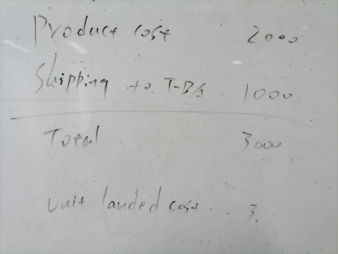 Product cost 2000
Shipping to 1000
Total 3000
Unit landed cost 3